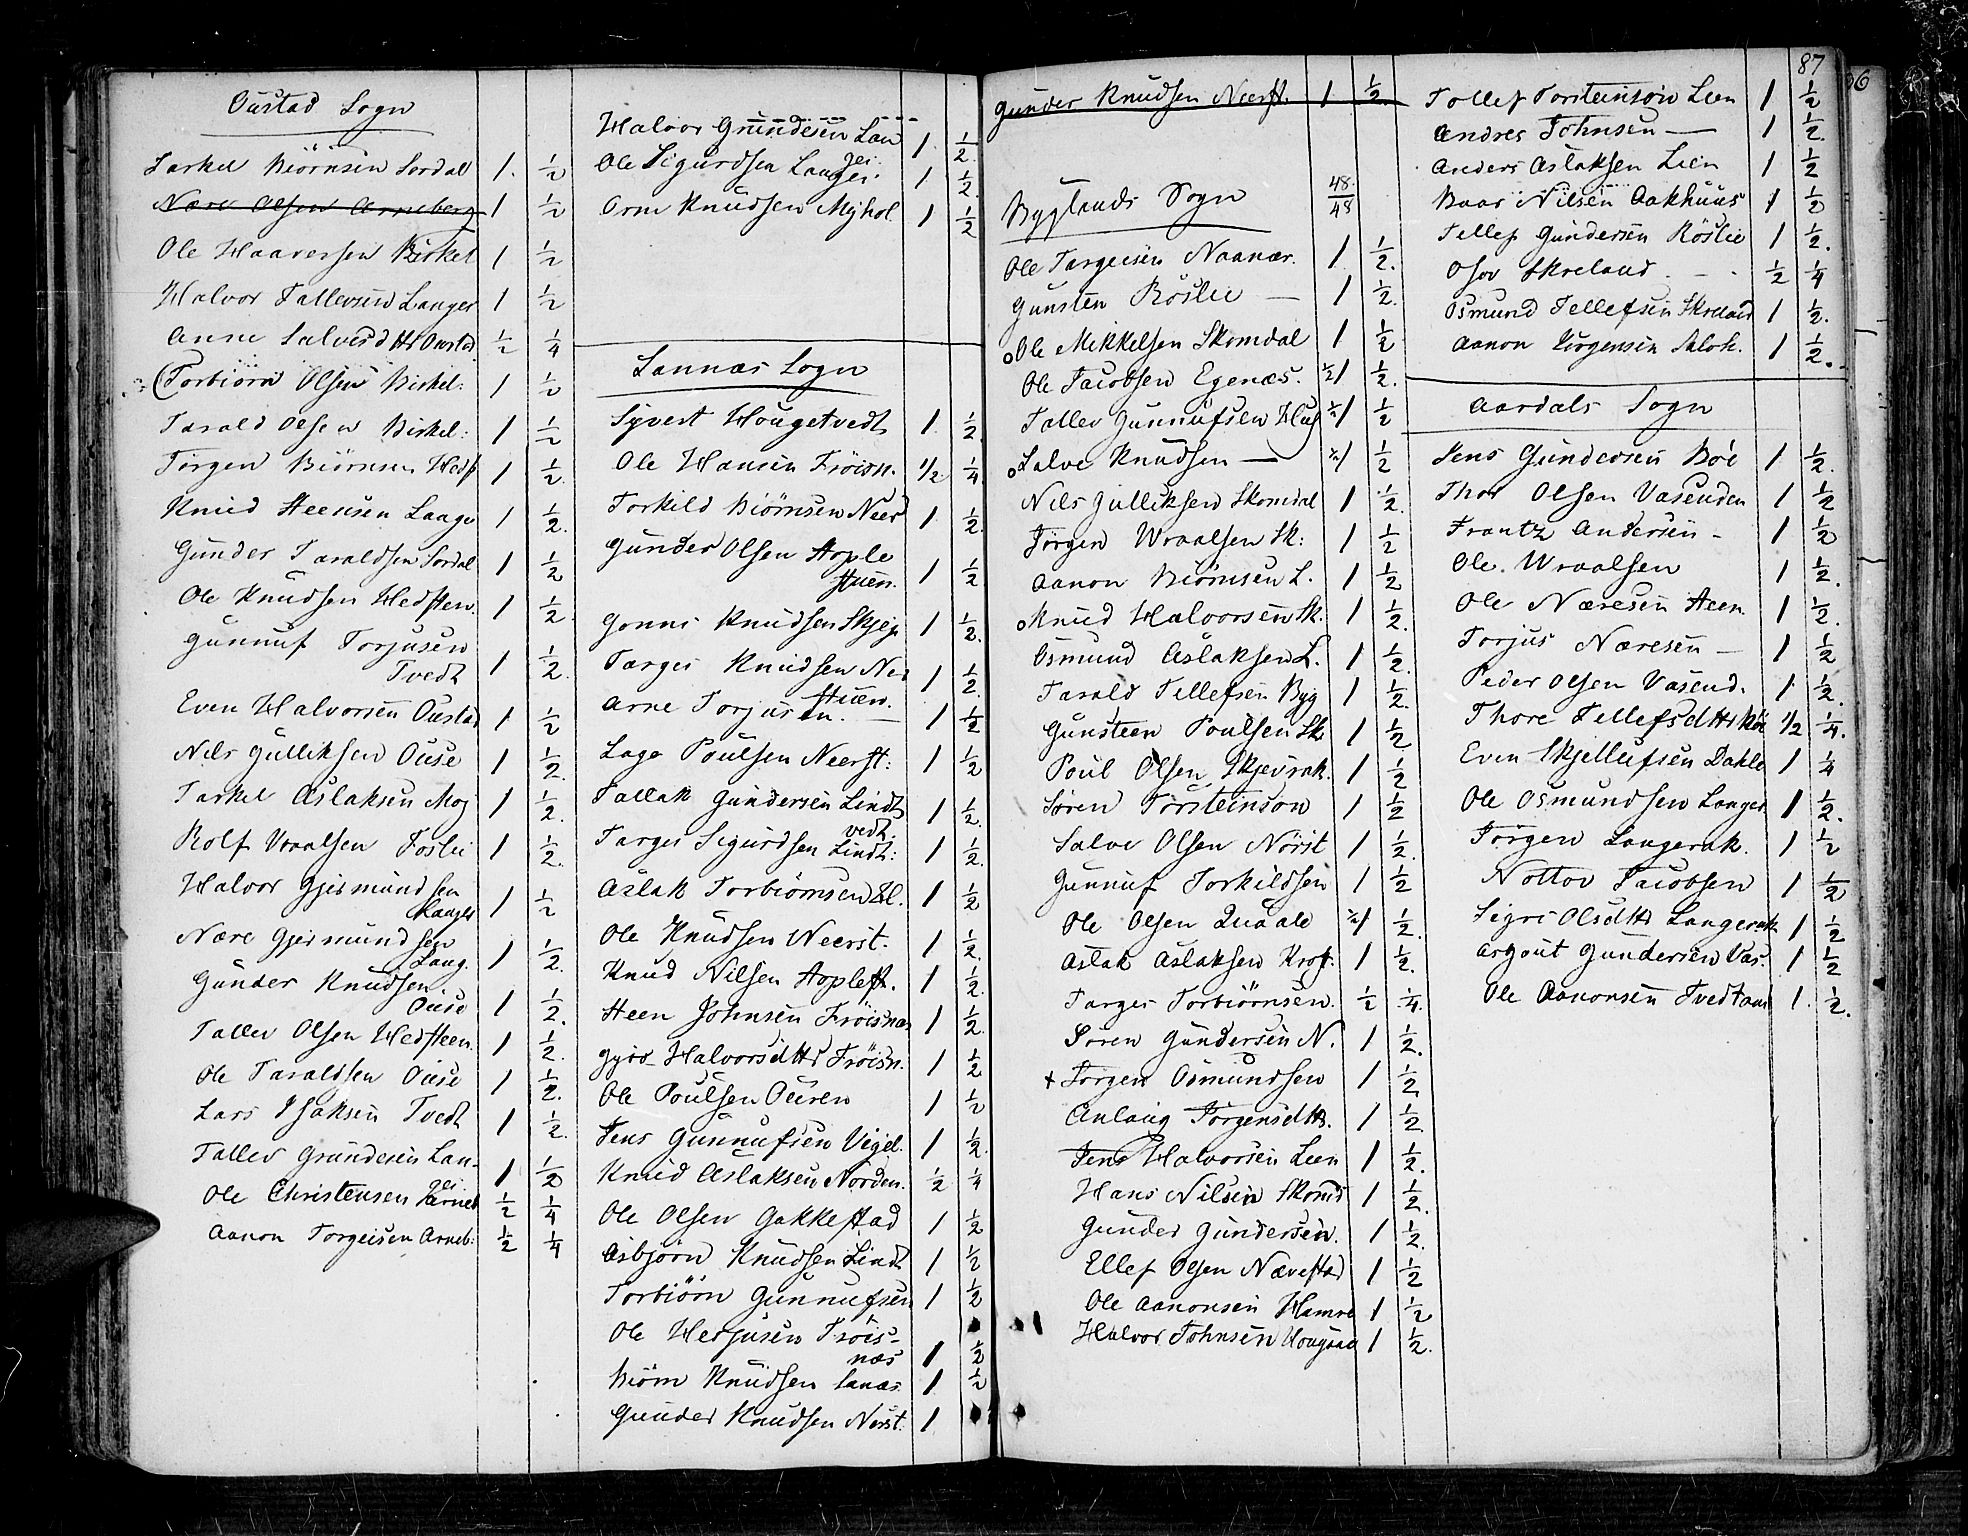 Oustad Sogn
Tarkel Biörnsen Sordal 1. 1/2
Nære Olsen Arneberg 1 1/2
Ole Haaversen Birkel 1 1/2
Halvor Tallevsen Langer 1 1/2
Anne Salvesdttr Oustad 1/2 1/4
(Torbiörn Olsen Birkel: 1 1/2
Tarald Olsen Birkel: 1 1/2
Jørgen Biörnsen Hedst 1 1/2.
Knud Steensen Lange 1 1/2.
Gunder Taraldsen Sordal 1 1/2
Ole Knudsen Hedsteen. 1 1/2.
Gunnuf Torjusen
Tvedt 1 1/2.
Even Halvorsen Oustad 1 1/2
Nils Gulliksen Ouse 1 1/2.
Tarkel Aslaksen Moj 1 1/2.
Rolf Vraalsen Foslie 1 1/2.
Halvor Gjermundsen
Langer 1 1/2
Nære Gjermundsen
Lang. 1 1/2.
Gunder Knudsen
Ouse 1 1/2.
Tallev Olsen Hedsteen. 1 1/2.
Ole Taraldsen Ouse 1 1/2.
Lars Isaksen Tvedt 1 1/2.
Tallev Grundesen Lan-
gei 1 1/2
Ole Christensen Arneb 1/2 1/4
Aanon Torgeisen Arneb: 1/2 1/4
Halvor Grundesen Lan
gei. 1 1/2.
Ole Sigurdsen Langei. 1 1/2.
Orm Knudsen Myhol 1 1/2
Sannæs Sogn
Syvert Hougetvedt 1. 1/2.
Ole Hansen Fröisn. 1/2 1/4
Torkild Biörnsen Neer 1. 1/2.
Gunder Olsen Hople
stuen. 1 1/2
Gonne Knudsen Skjeg 1 1/2.
Targei Knudsen Ner
stuen. 1 1/2.
Arne Torjusen. — 1 1/2
Lage Poulsen Neerst: 1 1/2
Tallak Gundersen Lindt
vedt. 1 1/2.
Targei Sigurdsen Lindt: 1 1/2.
Aslak Torbiörnsen Hl. 1 1/2
Ole Knudsen Neerst. 1 1/2.
Knud Nilsen Hoplest. 1 1/2.
Steen Johnsen Fröisnæs 1 1/2.
Gyro Halvorsdttr Fröisn. 1 1/2
Ole Poulsen Ouren 1 1/2
Jens Gunnufsen Vigel. 1 1/2.
Knud Aslaksen Norden. 1/2 1/4
Ole Olsen Gakkestad 1 1/2
Asbjörn Knudsen Lindt 1 1/2
Torbiörn Gunnufsen 1 1/2
Ole Herjusen Fröis-
næs 1 1/2
Biörn Knudsen Sanæs. 1 1/2
Gunder Knudsen Nerst. 1
Gunder Knudsen Neerst. 1 1/2.
Byglands Sogn 48./48
Ole Targeisen Naanær. 1. 1/2.
Gunsten Röslie — 1 1/2.
o Ole Mikkelsen Skomdal 1 1/2
Ole Jacobsen Egenæs. 1/2 1 1/2.
Tallev Gunnufsen 1/2 1 1/2
o Salve Knudsen — 1/2 1 1/2
Nils Gulliksen Skomdal 1 1/2.
Jörgen Wraalsen Sk: 1 1/2
Aanon Biörnsen L. 1 1/2
o Knud Halvorsen Sk. 1 1/2.
Osmund Aslaksen L. 1 1/2.
Tarald Tellefsen Byg 1 1/2.
Gunsteen Poulsen Sk 1 1/2
Poul Olsen Skjevrak. 1 1/2
Sören Törsteinson 1 1/2
Salve Olsen Nörst 1 1/2.
Gunnuf Torkildsen 1 1/2
Ole Olsen Quaale 1/2 1 1/2.
Aslak Aslaksen Krog. 1 1/2.
Targei Torbiörnsen. 1/2 1/4.
Sören Gundersen N. 1 1/2.
+ Jörgen Osmundsen 1 1/2
Anlaug Jörgensdttr. 1 1/2
Jens Halvorsen Lien 1 1/2.
Hans Nilsen Skomd 1 1/2.
Gunder Gundersen. 1 1/2.
Ellef Olsen Nævestad 1 1/2
Ole Aanonsen Hamre 1 1/2
Halvor Johnsen Hougaa 1 1/2.
87
Tollef Torsteinson Lien 1 1/2
Andres Johnsen — 1 1/2.
Anders Aslaksen Lien 1 1/2
Baar Nilsen Aakhuus 1 1/2
Tellef Gundersen Röslie 1 1/2.
Osov Skreland. - . 1/2 1/4
Osmund Tellefsen Skreland 1 1/2.
Aanon Jörgensen Sloh. 1 1/2.
Aardals Sogn
Jens Gundersen Böe 1. 1/2.
Thor Olsen Vasenden 1 1/2
Frantz Andersen - 1 1/2
Ole. Wraalsen 1 1/2.
Ole Næresen Steen 1 1/2.
Torjus Næresen — 1 1/2
Peder Olsen Vasend. 1. 1/2.
Thore Tellefsdttr 1/2 1/4.
Even Skjellufsen Dahle 1 1/4
Ole Osmundsen Langer 1 1/2.
Jörgen Langerak. 1 1/2
Nottov Jacobsen 1 1/2
Sigri Olsdttr Langerak 1 1/2
Asgout Gundersen Vas. 1 1/2
Ole Aanonsen Tvedtaa 1. 1/2.